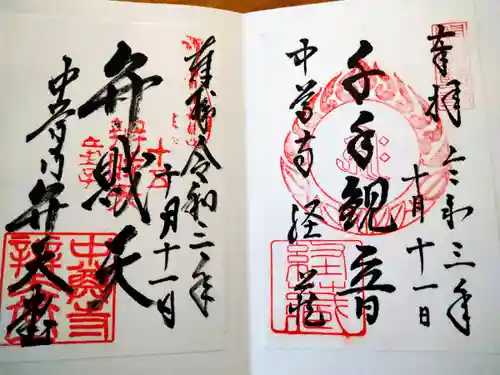 奉拝 令和三年
十月十一日
千手観音
中尊寺 経蔵
奉拝 令和三年
十月十一日
弁財天
十五童子
中尊寺 弁天堂